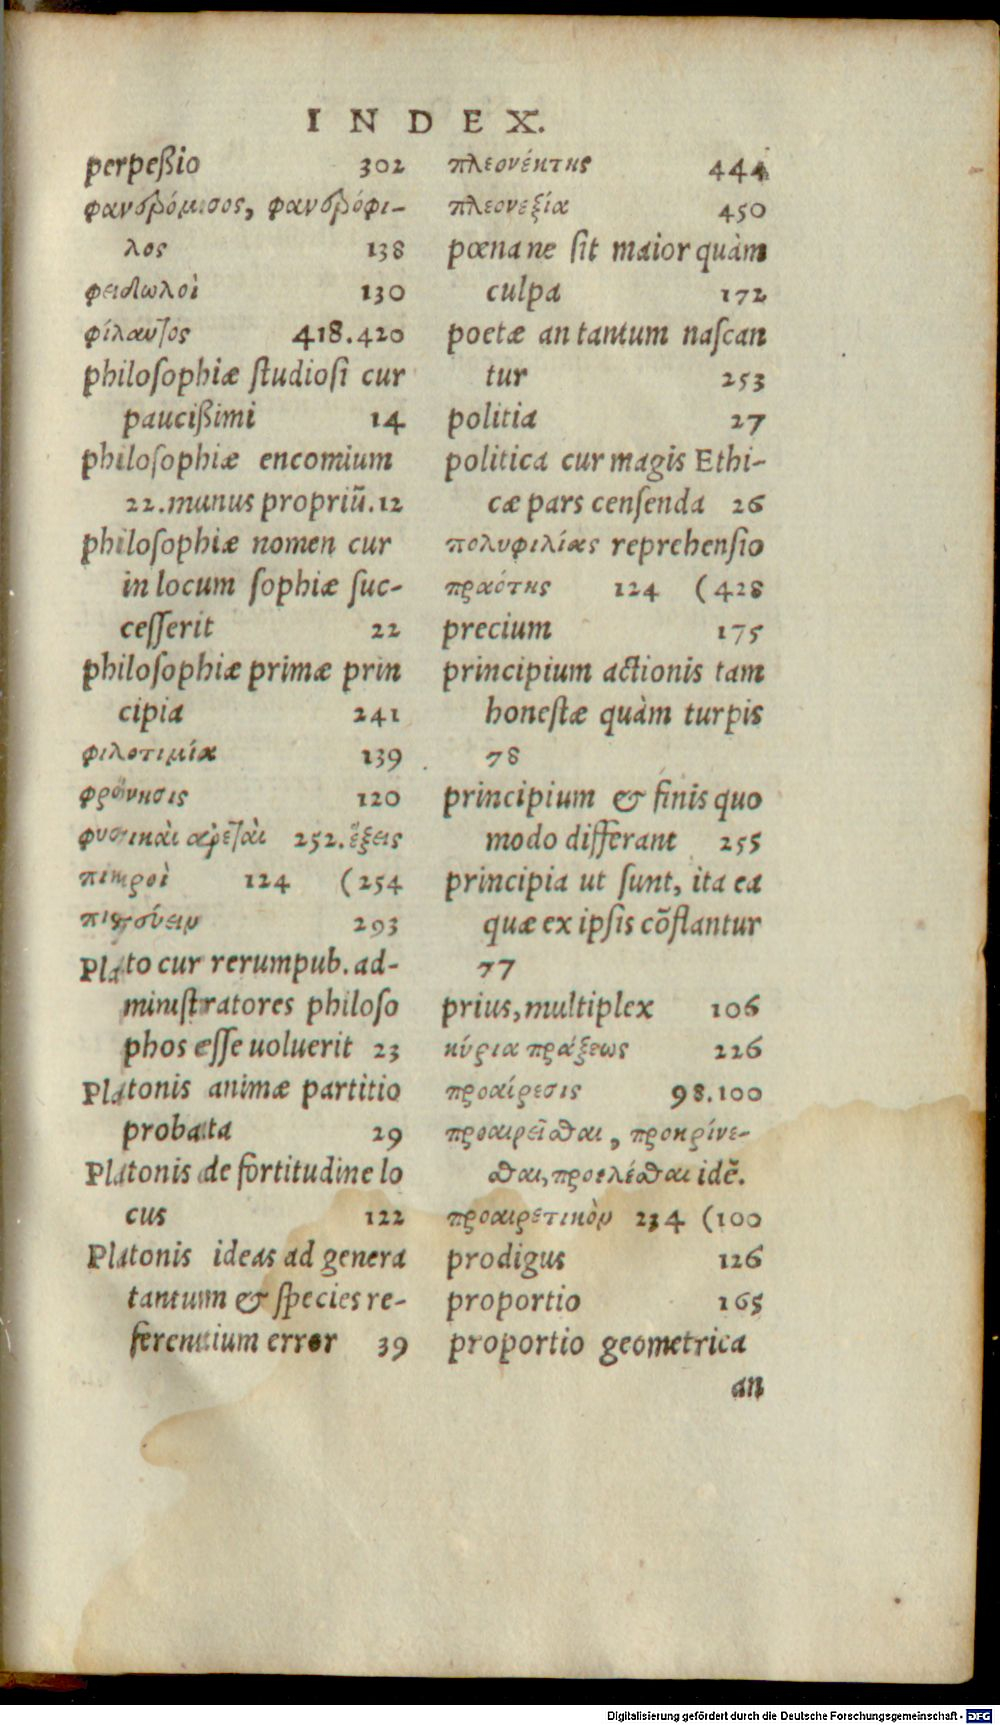 INDEX.
perpeßio 302
φανερόμισος, φανερόφι-
λος 138
φειδωλοὶ 130
φίλαυτος 418.420
philoſophiæ ſtudioſi cur
paucißimi 14
philoſophiæ encomium
22.munus propriũ.12
philoſophiæ nomen cur
in locum ſophiæ ſuc-
ceſſerit 22
philoſophiæ primæ prin
cipia 241
φιλοτιμία 139
φρόνησις 120
φυσικαὶ ἀρεταὶ 252.ἕξεις
πικροὶ 124 (254
πιστεύειν 293
Plato cur rerumpub.ad-
miniſtratores philoſo
phos eſſe uoluerit 23
Platonis animæ partitio
probata 29
Platonis de fortitudine lo
cus 122
Platonis ideas ad genera
tantum & ſpecies re-
ferentium error 39
πλεονέκτης 444
πλεονεξία 450
pœna ne ſit maior quàm
culpa 172
poetæ an tantum naſcan
tur 253
politia 27
politica cur magis Ethi-
cæ pars cenſenda 26
πολυφιλίας reprehenſio
πραότης 124 (428
precium 175
principium actionis tam
honeſtæ quàm turpis
78
principium & finis quo
modo differant 255
principia ut ſunt, ita ea
quæ ex ipſis cõſtantur
77
prius,multiplex 106
κύρια πράξεως 226
προαίρεσις 98.100
προαιρεῖσθαι, προκρίνε-
σθαι,προελέσθαι idẽ.
προαιρετικὸν 234 (100
prodigus 126
proportio 165
proportio geometrica
an
Digitalisierung gefördert durch die Deutsche Forschungsgemeinschaft - DFG